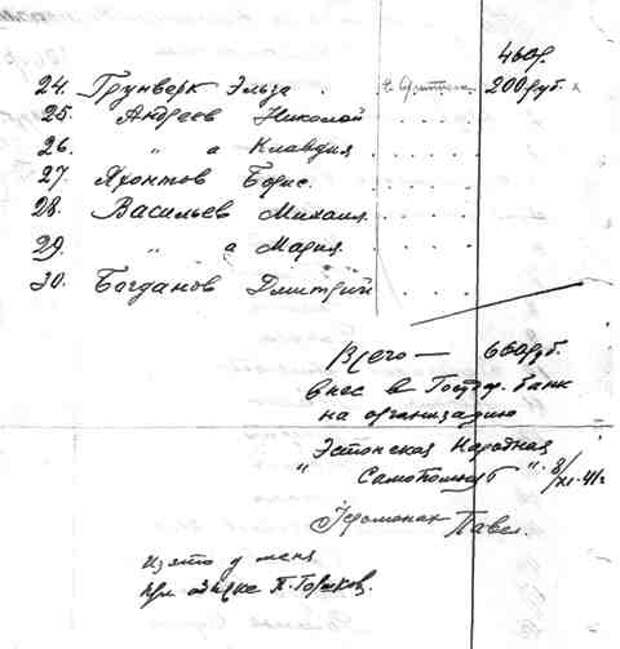 460р.
24. Грунверк Эльза . 200 руб. x
25. Андреев Николай . . . .
26. " а Клавдия . . . .
27. Яхонтов Борис. . . . .
28. Васильев Михаил. . . .
29. " а Мария. . . . .
30. Богданов Дмитрий . . . .
Всего — 660 руб.
внес в Госуд. банк
на организацию
"Эстонская Народная
Самопомощь". 8/XI-41г
Иеромонах Павел.
Изято у меня
при обыске П. Горшков.